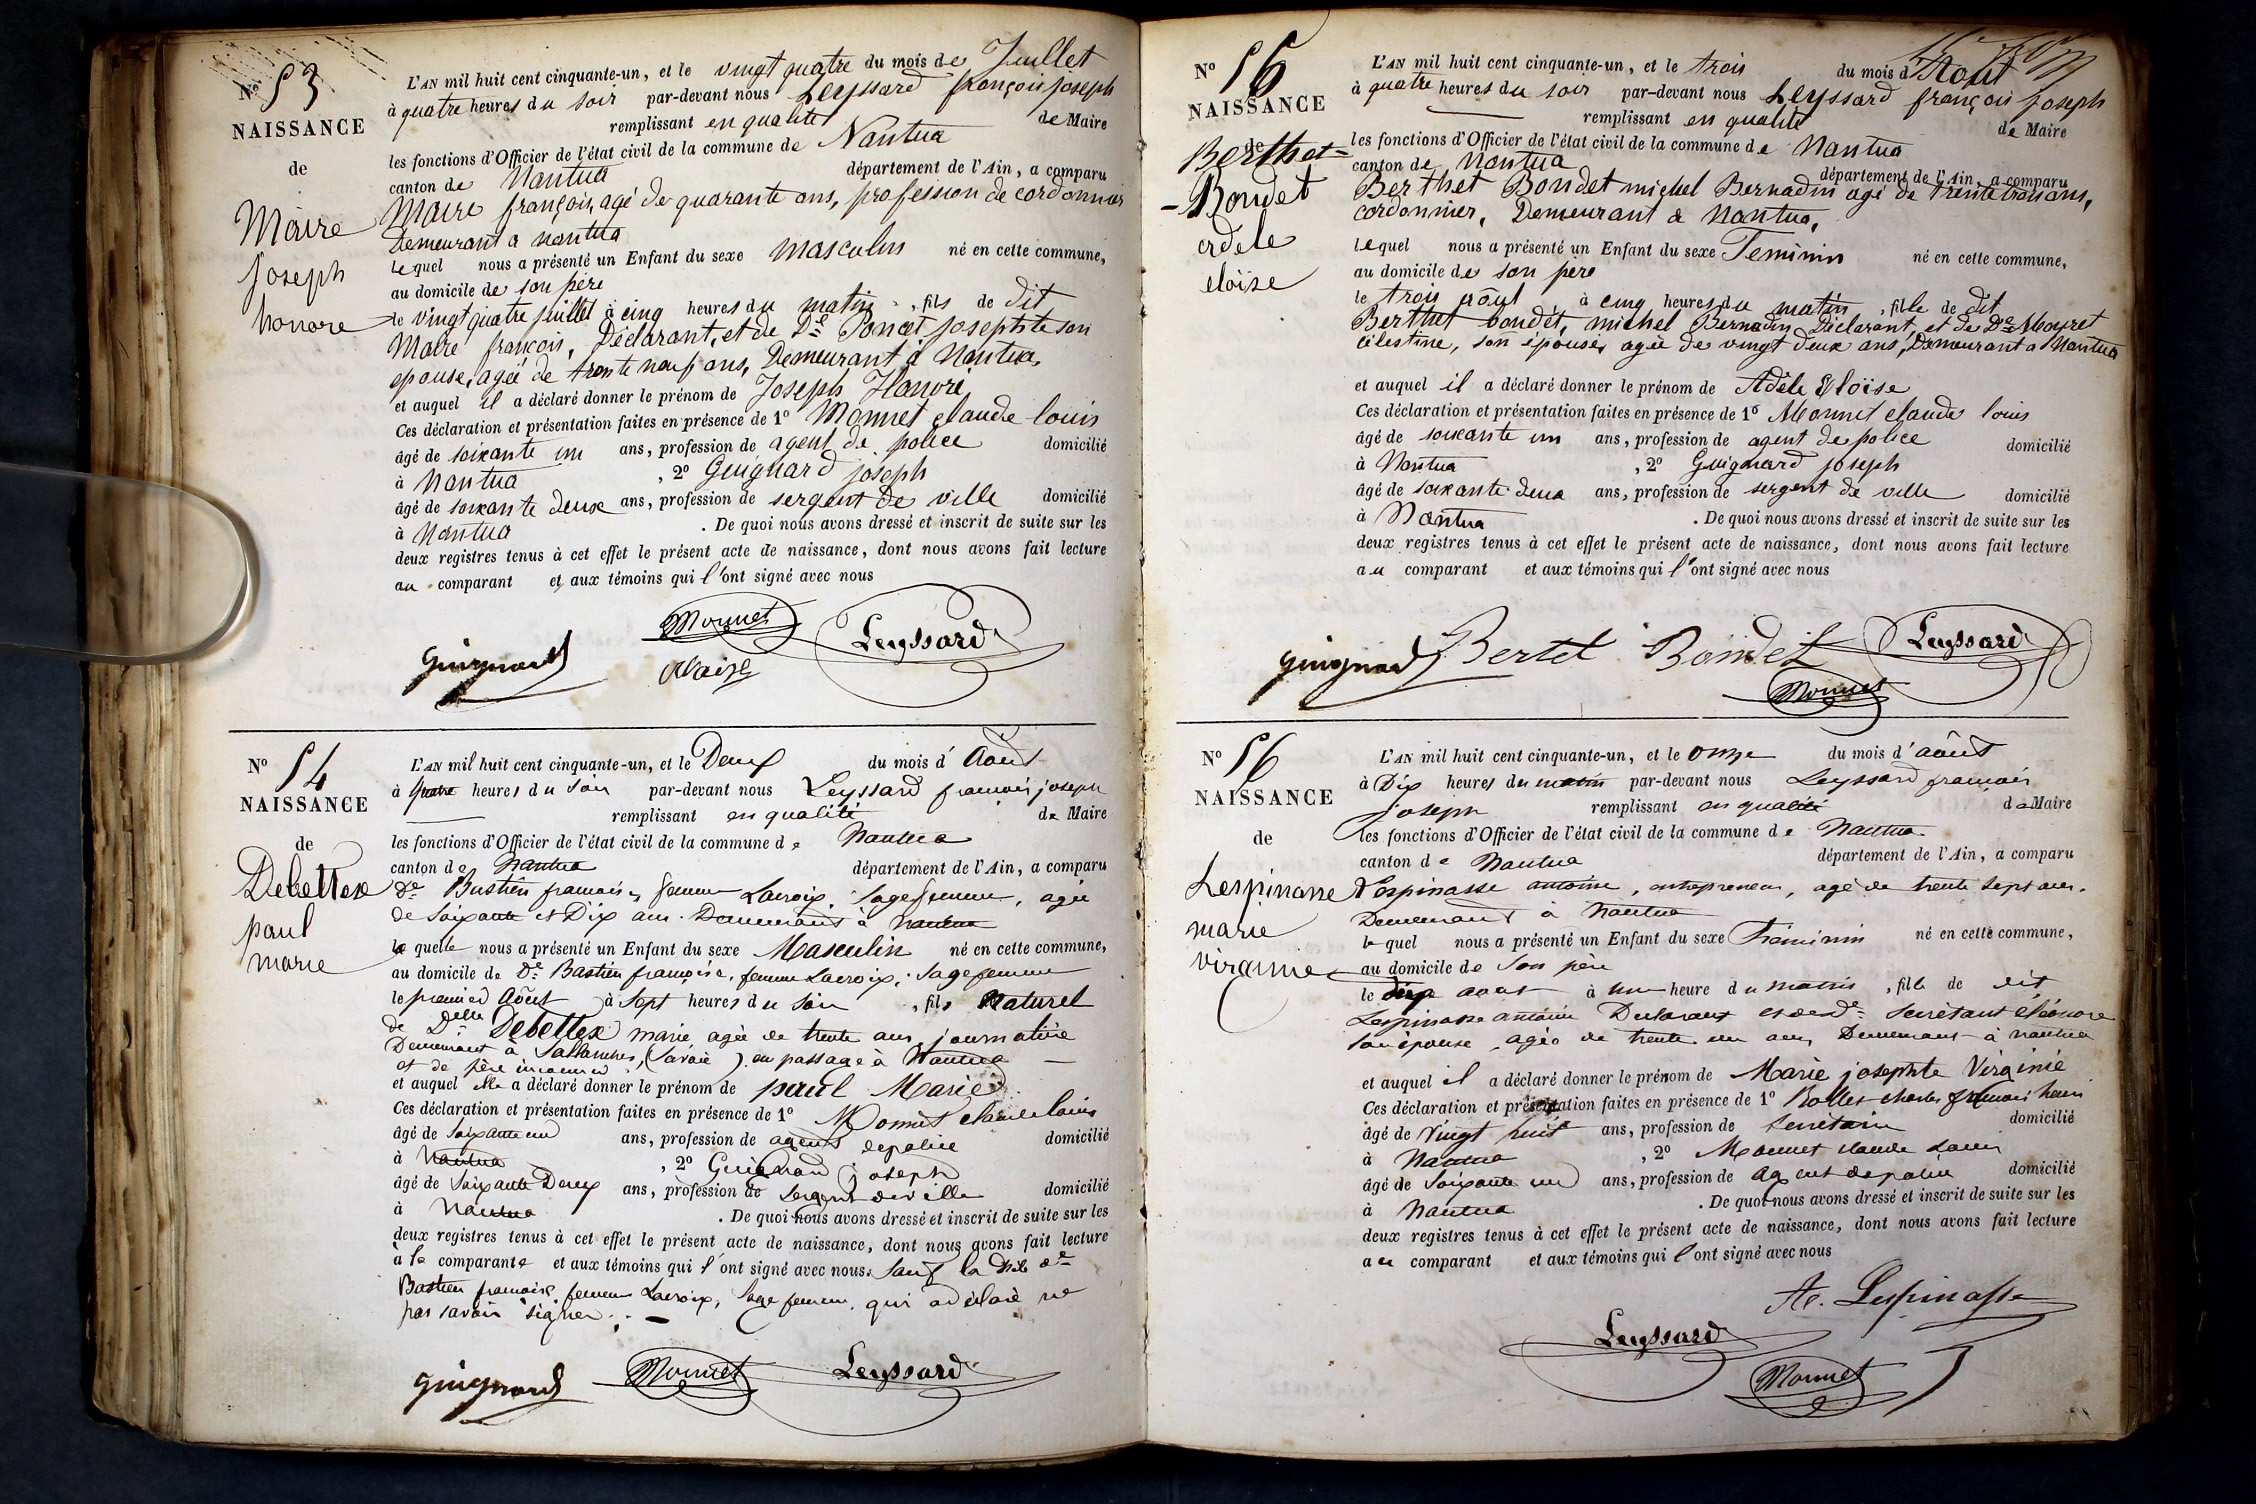 No 53
NAISSANCE
de
Maire
Joseph
honore
L'AN mil huit cent cinquante-un, et le vingt quatre du mois de Juillet
à quatre heures du soir par-devant nous Leyssard françois joseph
remplissant en qualité de Maire
les fonctions d'Officier de l'état civil de la commune de Nantua
canton de Nantua département de l'Ain, a comparu
Maire françois, agé de quarante ans, profession de cordonnier
demeurant a nantua
lequel nous a présenté un Enfant du sexe masculin né en cette commune,
au domicile de son père
le vingt quatre juillet à cinq heures du matin, fils de dit
Maire françois, Déclarant, et de De Poncet josephte son
epouse, agée de trente neuf ans, Demeurant à Nantua,
et auquel il a déclaré donner le prénom de Joseph Honoré
Ces déclaration et présentation faites en présence de 1o Monnet claude louis
âgé de soixante un ans, profession de agent de police domicilié
à Nantua, 2o Guignard joseph
âgé de soixante deux ans, profession de sergent de ville domicilié
à Nantua. De quoi nous avons dressé et inscrit de suite sur les
deux registres tenus à cet effet le présent acte de naissance, dont nous avons fait lecture
au comparant et aux témoins qui l'ont signé avec nous
Monnet
Leyssard
Guignard
Maire
No 54
NAISSANCE
de
Debettex
paul
marie
L'AN mil huit cent cinquante-un, et le Deux du mois d'Août
à quatre heures du soir par-devant nous Leyssard francois joseph
remplissant en qualité de Maire
les fonctions d'Officier de l'état civil de la commune de Nantua
canton de Nantua département de l'Ain, a comparu
De Bastien francoise, femme Lacroix, sagefemme, agée
de soixante et Dix ans. Demeurant à nantua
la quelle nous a présenté un Enfant du sexe Masculin né en cette commune,
au domicile de De Bastien françoise, femme Lacroix, sagefemme
le premier Août à sept heures du soir, fils Naturel
de Delle Debettex marie, agée de trente ans, journalière
Demeurant à Sallanches, (Savoie) en passage à Nantua
et de père inconnu.
et auquel elle a déclaré donner le prénom de paul Marie
Ces déclaration et présentation faites en présence de 1o Monnet claude louis
âgé de soixante un ans, profession de agent depolice domicilié
à Nantua, 2o Guignard joseph
âgé de soixante Deux ans, profession de sergent de ville domicilié
à Nantua. De quoi nous avons dressé et inscrit de suite sur les
deux registres tenus à cet effet le présent acte de naissance, dont nous avons fait lecture
à la comparante et aux témoins qui l'ont signé avec nous. Sauf la dite de
Bastien francoise femme Lacroix, sage femme, qui a déclaré ne
pas savoir signer.
Guignard
Monnet
Leyssard
No 56
NAISSANCE
de
Berthet-
-Bondet
adele
eloïse
L'AN mil huit cent cinquante-un, et le trois du mois d'Août
à quatre heures du soir par-devant nous Leyssard françois joseph
remplissant en qualité de Maire
les fonctions d'Officier de l'état civil de la commune de Nantua
canton de Nantua département de l'Ain, a comparu
Berthet Bondet michel Bernadin agé de trente trois ans,
cordonnier, Demeurant a Nantua,
lequel nous a présenté un Enfant du sexe Feminin né en cette commune,
au domicile de son père
le trois août, à cinq heures du matin, fille de dit
Berthet bondet, michel Bernadin Déclarant, et de De Mouret
célestine, son épouse, agée de vingt deux ans, Demeurant a Nantua
et auquel il a déclaré donner le prénom de Adèle Eloïse
Ces déclaration et présentation faites en présence de 1o Monnet claude louis
âgé de soixante un ans, profession de agent de police domicilié
à Nantua, 2o Guignard joseph
âgé de soixante deux ans, profession de sergent de ville domicilié
à Nantua. De quoi nous avons dressé et inscrit de suite sur les
deux registres tenus à cet effet le présent acte de naissance, dont nous avons fait lecture
au comparant et aux témoins qui l'ont signé avec nous
Guignard
Bertet Bondet
Leyssard
Monnet
No 56
NAISSANCE
de
Lespinasse
marie
virginie
L'AN mil huit cent cinquante-un, et le onze du mois d'août
à Dix heures du matin par-devant nous Leyssard françois
joseph remplissant en qualité de Maire
les fonctions d'Officier de l'état civil de la commune de Nantua
canton de Nantua département de l'Ain, a comparu
Lespinasse antoine, entrepreneur, agé de trente sept ans.
Demeurant à Nantua
lequel nous a présenté un Enfant du sexe Féminin né en cette commune,
au domicile de son père
le dix aout à une heure du matin, fille de dit
Lespinasse antoine Declarant et de de Secretant éléonore
son épouse, agée de trente un ans, Demeurant à nantua
et auquel il a déclaré donner le prénom de Marie josephte Virginie
Ces déclaration et présentation faites en présence de 1o Rollet charles françois henri
âgé de vingt huit ans, profession de secrétaire domicilié
à Nantua, 2o Monnet claude Louis
âgé de soixante un ans, profession de agent depolice domicilié
à Nantua. De quoi nous avons dressé et inscrit de suite sur les
deux registres tenus à cet effet le présent acte de naissance, dont nous avons fait lecture
au comparant et aux témoins qui l'ont signé avec nous
At. Lespinasse
Leyssard
Monnet